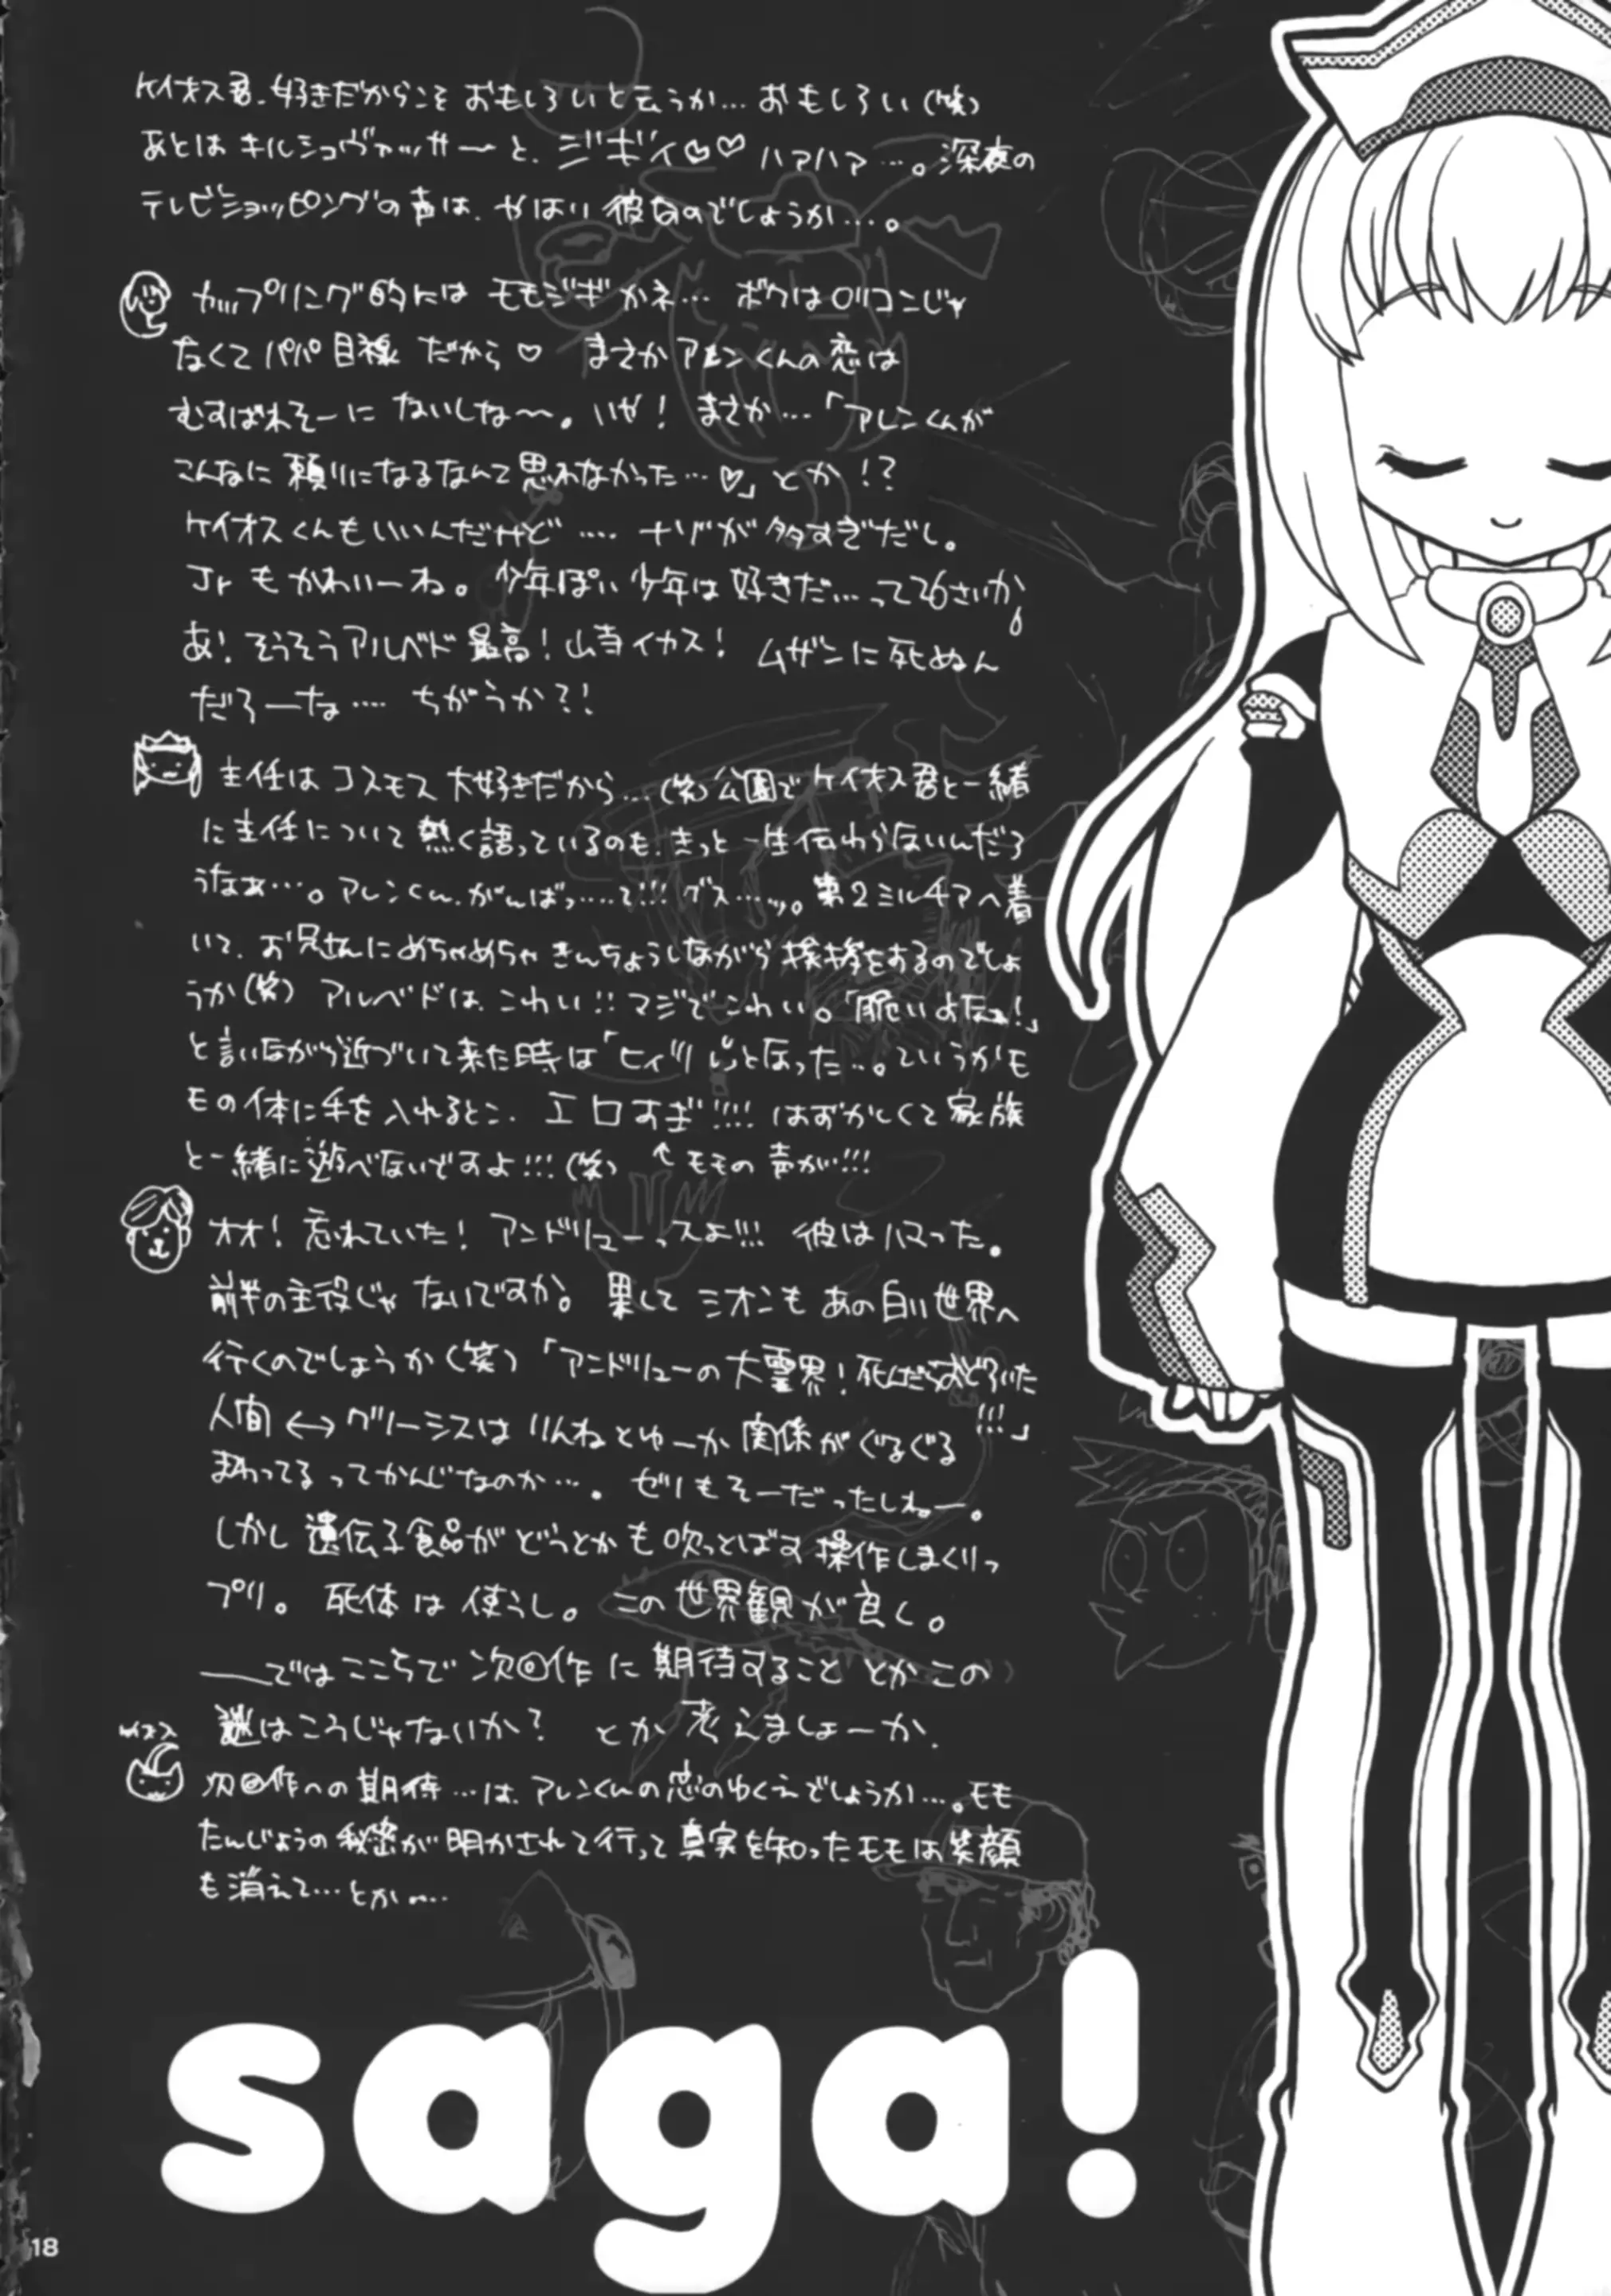 ケイオス君、好きだからこそ おもしろいと云うか… おもしろい(笑)
あとは キルシュヴァッサーと、ジギィ♡♡ ハアハア…。深夜の
テレビショッピングの声は、やはり 彼なのでしょうか…。
カップリング的には モモジギかネ… ボクはロリコンじゃ
なくて パパ目線 だから♡ まさか アレンくんの恋は
むすばれそーに ないしな〜〜。いや! まさか…「アレンくんが
こんなに 頼りになるなんて思わなかった…♡」とか!?
ケイオスくんもいいんだけど…. ナゾが多すぎだし。
Jr もかわいーね。少年ぽい少年は好きだ…って26さいか
あ! そうそうアルベド 最高! 山寺イカス! ムザンに死ぬん
だろーな…. ちがうか?!
主任は コスモス 大好きだから…(笑) 公園で ケイオス君と一緒
に主任について 熱く語っているのも、きっと一生伝わらないんだろ
うなぁ…。アレンくん、がんばっ……て!!! グス……。第2ミルチアへ着
いて、お兄さんにめちゃめちゃ きんちょうしながら 挨拶をするのでしょ
うか(笑) アルベドは、こわい!! マジでこわい。「脆いよなぁ!」
と言いながら近づいて来た時は「ヒィツ!」となった…。ていうかモ
モの体に手を入れるとこ、エロすぎ!!!! はずかしくて 家族
と一緒に遊べないですよ!!!(笑) ↑モモの 声が…!!!
オオ! 忘れていた! アンドリューっスよ!!! 彼はハマった。
前半の主役じゃ ないですか。 果して シオンも あの白い世界へ
行くのでしょうか(笑)「アンドリューの大霊界! 死んだらおどろいた
!!!」
人間 ↔ グノーシスは りんねとゆーか 関係が ぐるぐる
まわってる ってかんじなのか…。 ゼノもそーだったしねー。
しかし 遺伝子食品が どうとかも 吹っとばす 操作しまくりっ
プリ。 死体は 使うし。この世界観が良く。
――では ここらで 次回作 に 期待すること とか この
謎はこうじゃないか? とか 考えましょーか、
次回作への 期待…は、アレンくんの恋のゆくえでしょうか…。モモ
たんじょうの秘密が 明かされて行って 真実を知ったモモは 笑顔
も消えて…とか…
saga!
18